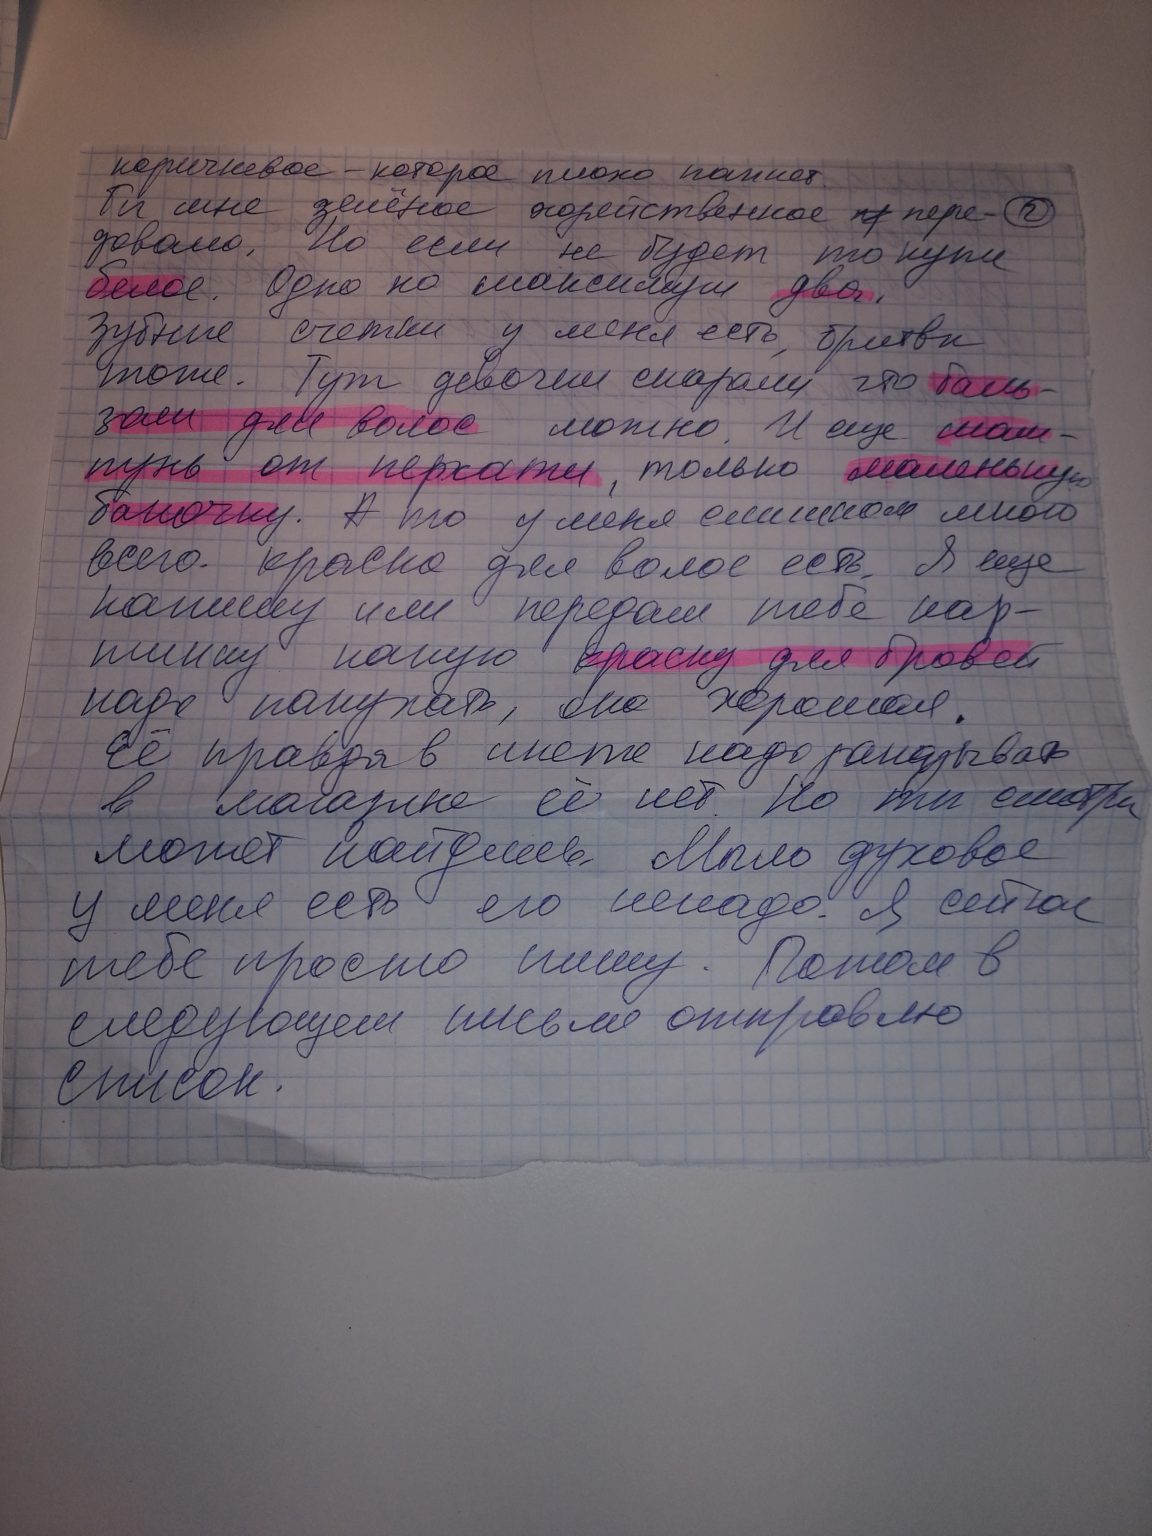 коричневое - которое плохо пахнет
Ты мне зелёное хозейственное пере- 2
довала. Но если не будет то купи
белое. Одно но максимум два.
Зубные счетки у меня есть, бритвы
тоже. Тут девочки сказали что баль-
зам для волос можно. И еще шам-
пунь от перхати, только маленькую
баночку. А то у меня слишком много
всего. Краска для волос есть. Я еще
напишу или передам тебе кар-
тинку какую краску для бровей
надо покупать, она хорошая.
Её правда в инете надо заказывать
в магазине её нет. Но ты смотри
может найдешь. Мыло духовое
у меня есть его ненадо. Я сейчас
тебе просто пишу. Потом в
следующем письме отправлю
список.